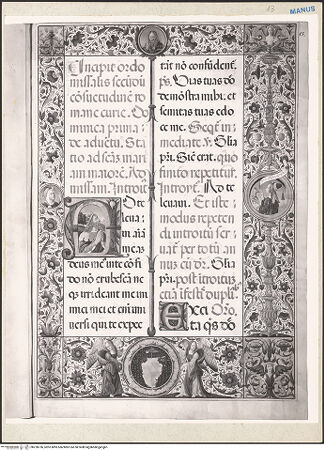 13
MANUS
Incipit ordo
missalis secūdū
cōsuetudinē ro
mane curie. Do
minica prima
de adūetu. Sta
tio ad scām mari
am maiorē. Ad
missam. Introit⁹
D te
leuaui
aīaȝ
meaȝ
deus meus in te cōfi
do nō erubescā ne
qȝ irrideant me ini
mici mei et enim uni
uersi qui te expec
tāt nō confūdent̄.
ps. Uias tuas dō
demōstra mihi: et
semitas tuas edo
ce me. Seqt̄ im
mediate. ℣. Glia
pr̄i. Sic̄ erat. quo
finito repetitur
Introit⁹. Ad te
leuaui. Et iste
modus repeten
di introitū ser
uat̄ per totū an
nū. Glia
pr̄i. post introitus
Excita qs dō